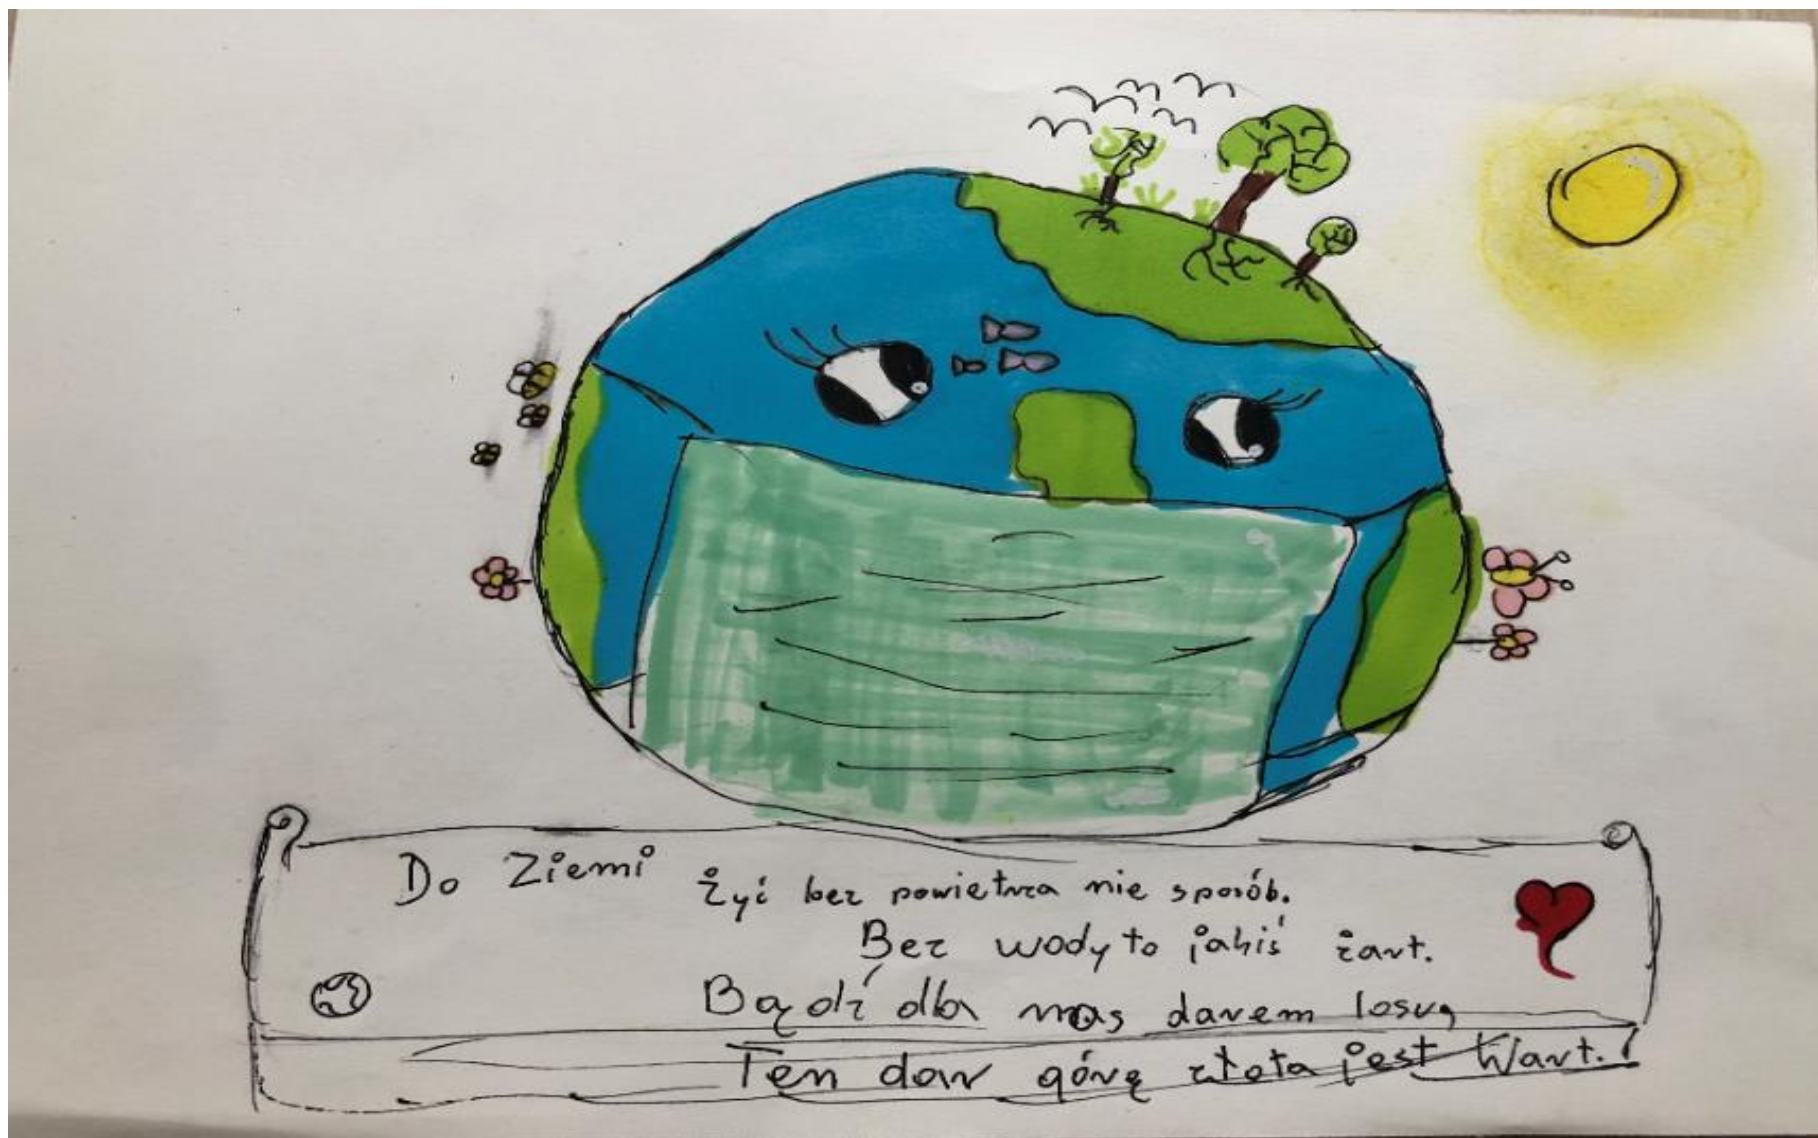 Do Ziemi
Żyć bez powietrza nie sposób.
Bez wody to jakiś żart.
Bądź dla nas darem losu,
Ten dar górę złota jest wart.!